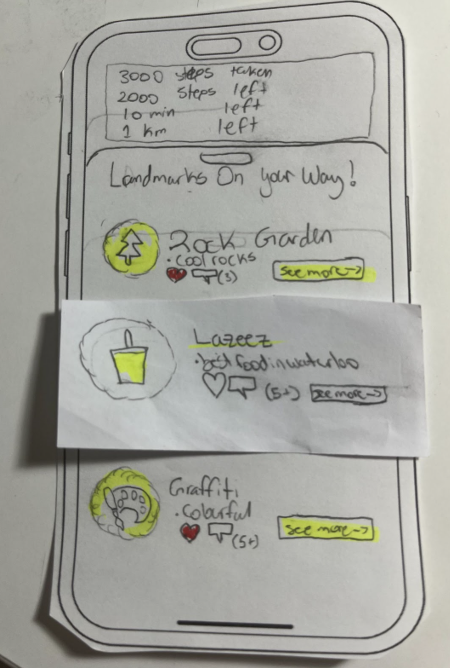 3000 steps taken
2000 steps left
10 min left
1 km left
Landmarks On your Way!
Rock Garden
• Cool rocks
(3) see more →
Lazeez
• best food in waterloo
(5+) see more →
Graffiti
• Colourful
(5+) see more →